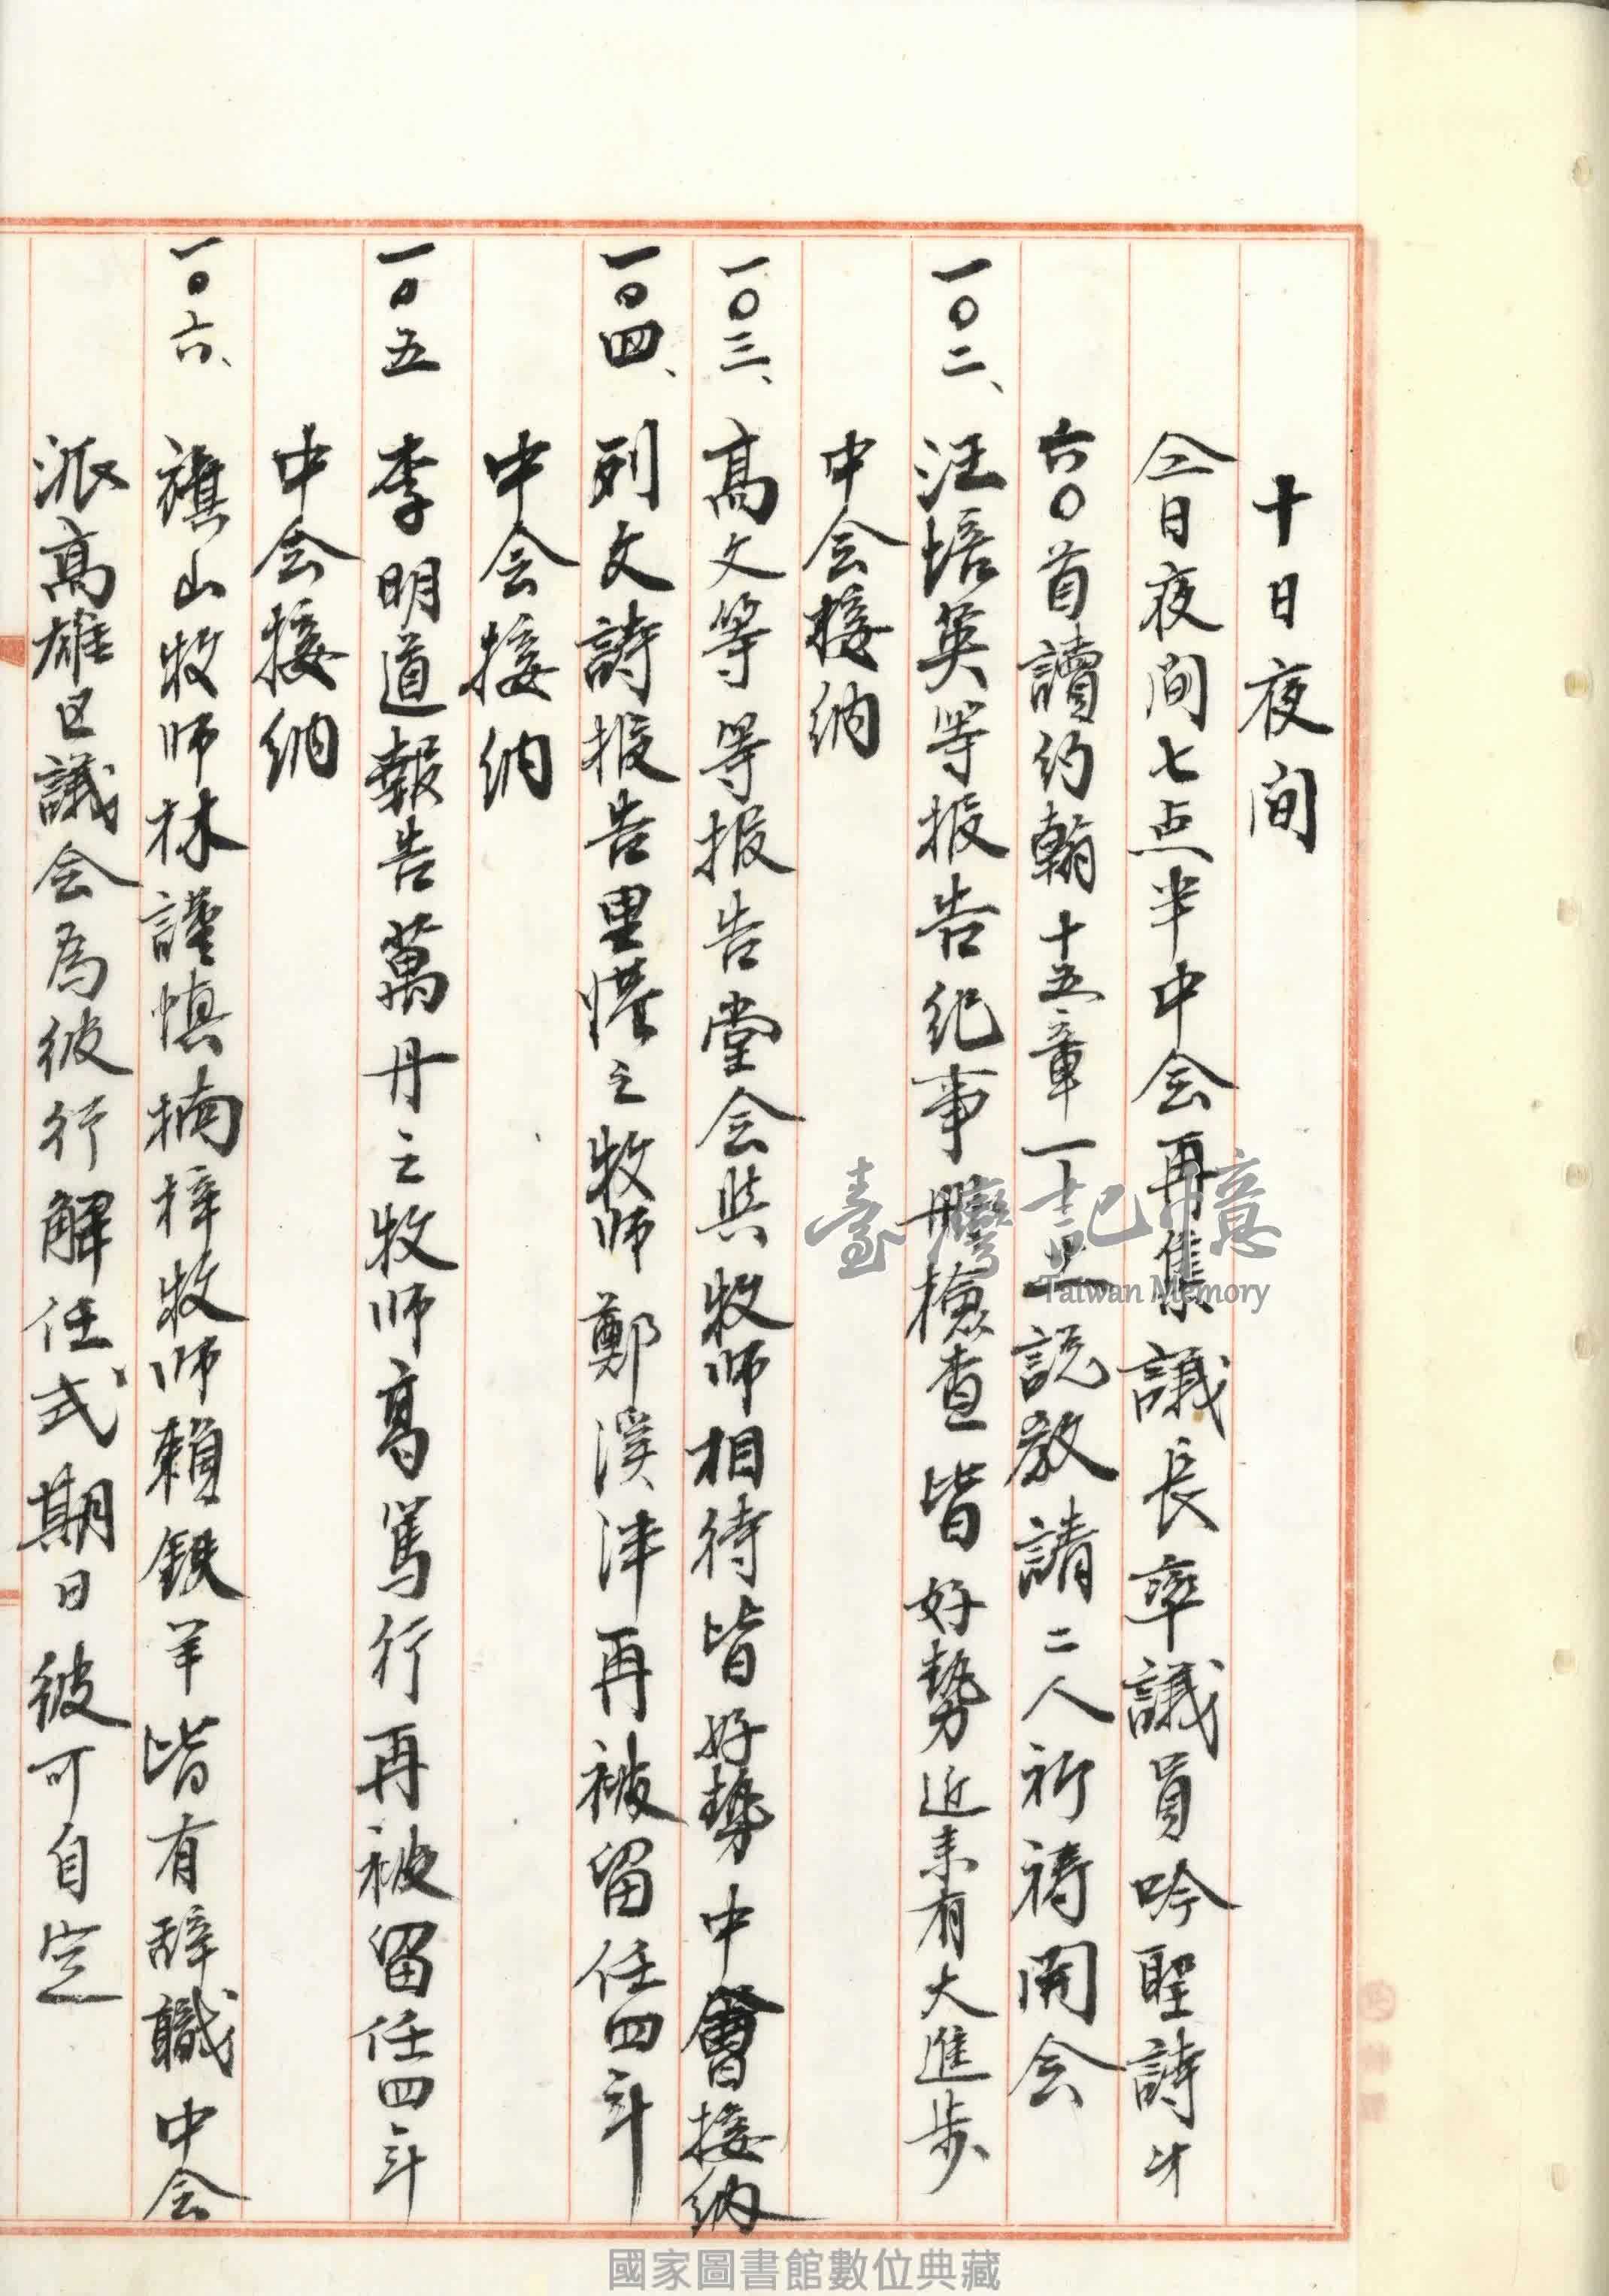 十日夜间
仝日夜间七点半中会再集議長率議員吟聖詩才
六〇首讀約翰十五章一十二説教請二人祈祷開会
一〇二、汪培英等报告紀事冊檢查皆好勢近来有大進步
中会接纳
一〇三、高文等等报告堂会與牧师相待皆好勢中會接纳
一〇四、列文詩报告里港之牧师鄭溪洋再被留任四年
中会接纳
一〇五 李明道報告萬丹之牧师高篤行再被留任四年
中会接纳
一〇六、旗山牧师林謹慎楠梓牧师賴鉄羊皆有辞職中会
派高雄区議会為彼行解任式期日彼可自定
臺灣記憶
Taiwan Memory
國家圖書館數位典藏